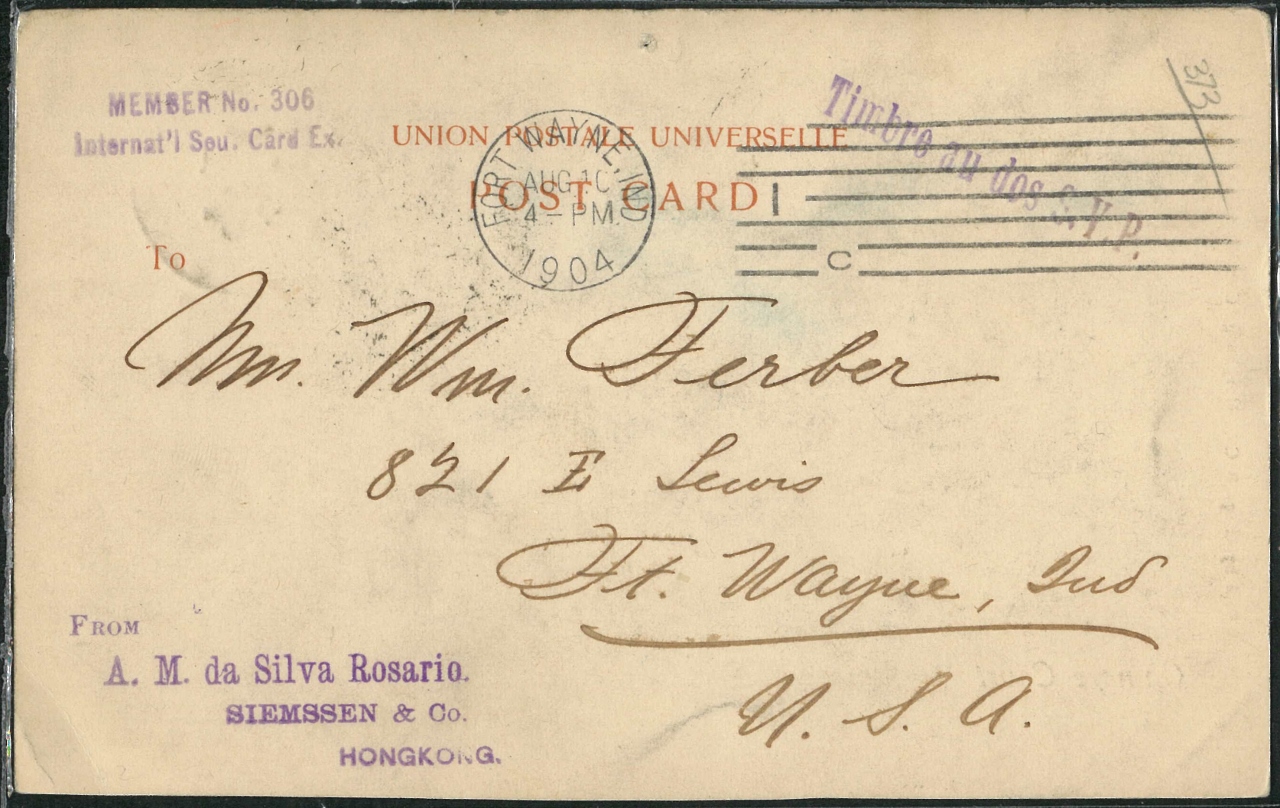 MEMBER No. 306
Internat'l Sou. Card Ex.
UNION POSTALE UNIVERSELLE
POST CARD
FORT WAYNE, IND
AUG 10
4 - PM
1904
1
C
Timbre au dos S.V.P.
373
To
Wm. Ferber
821 E Lewis
Ft. Wayne, Ind
U. S. A.
FROM
A. M. da Silva Rosario.
SIEMSSEN & Co.
HONGKONG.